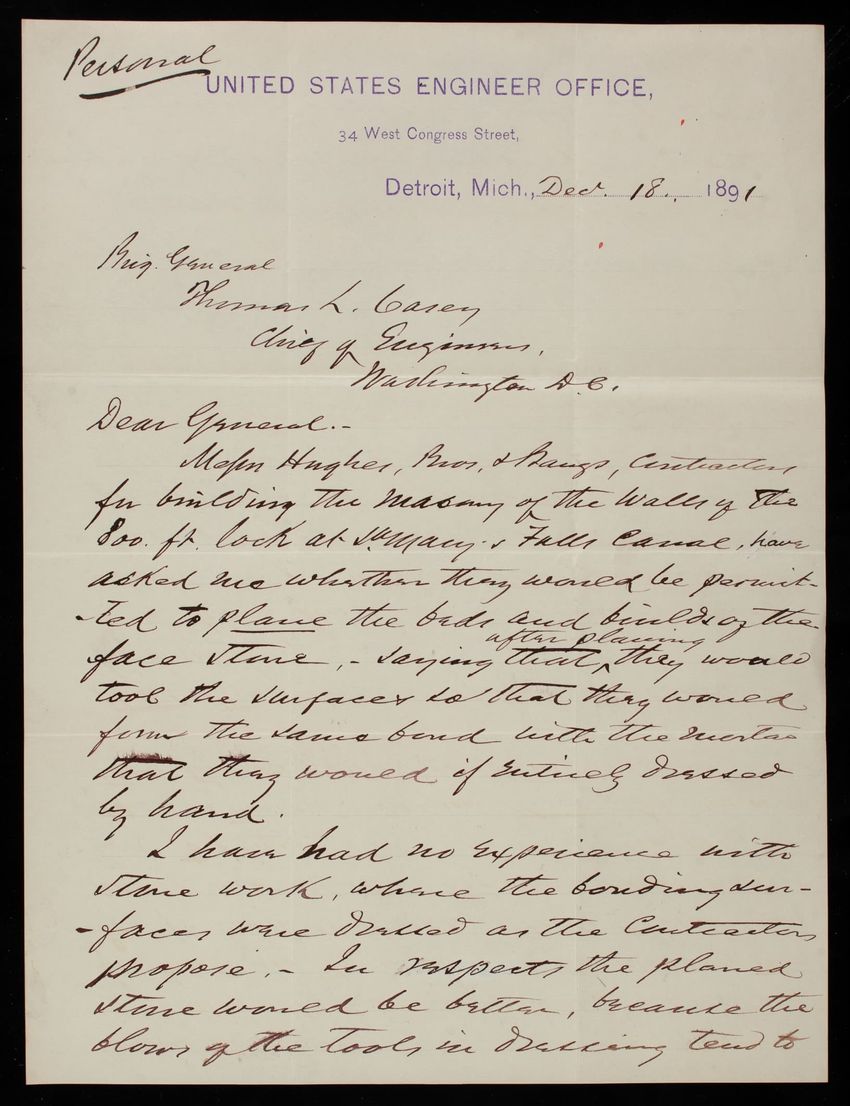 Personal
UNITED STATES ENGINEER OFFICE,
34 West Congress Street,
Detroit, Mich., Decr. 18., 1891
Brig. General
Thomas L. Casey
Chief of Engineers,
Washington D.C.
Dear General.-
Messrs Hughes, Bros. & Bangs, Contractors
for building the masonry of the Walls of the
800. ft. lock at St. Mary's Falls Canal, have
asked me whether they would be permit-
-ted to plane the beds and builds of the
after planing
face stone, - saying that, they would
tool the surfaces so that they would
form the same bond with the mortar
that they would if entirely dressed
by hand.
I have had no experience with
stone work, where the bonding sur-
-faces were dressed as the Contractors
propose. - In respects the planed
stone would be better, because the
blows of the tools in dressing tend to